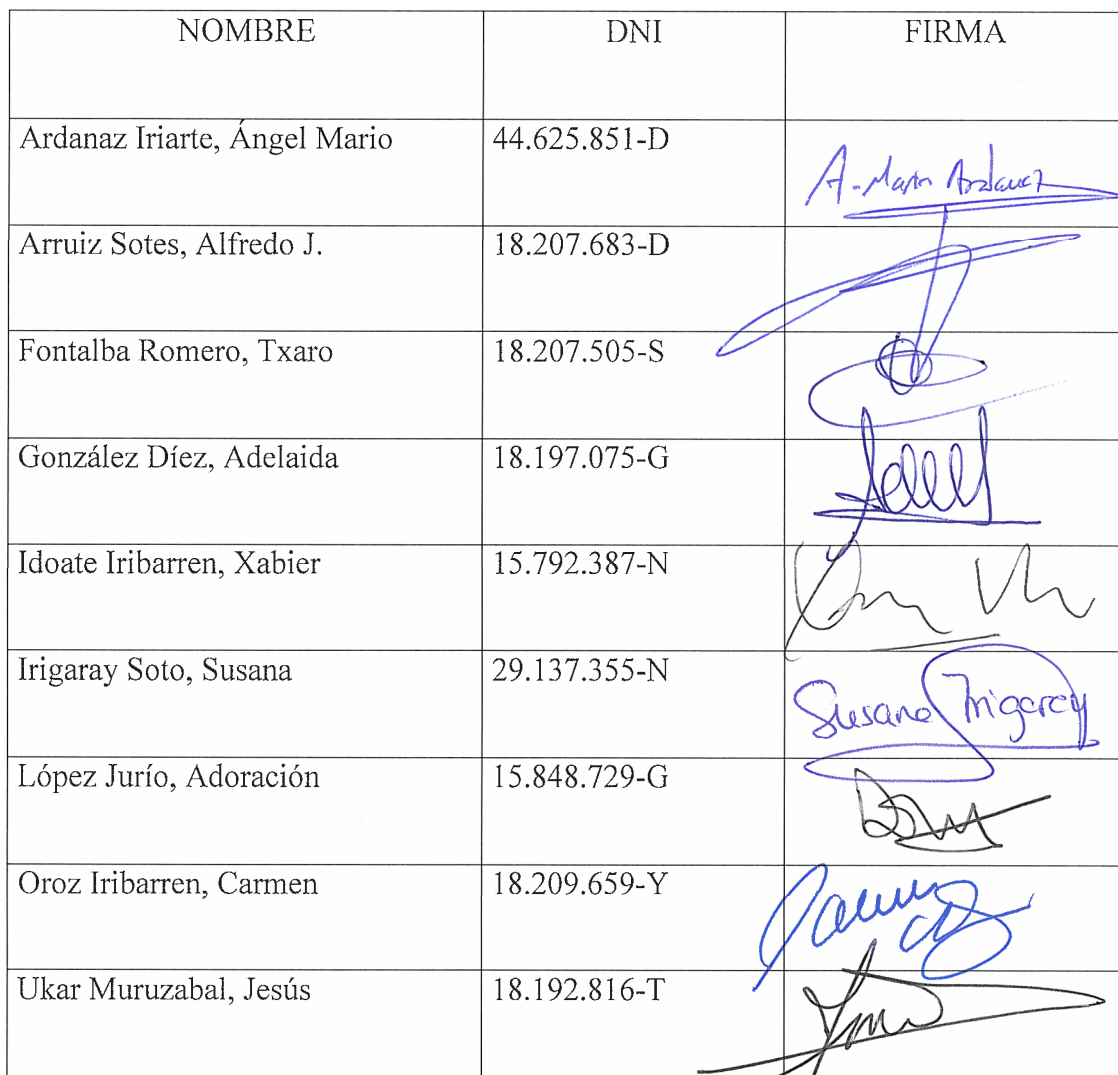 NOMBRE DNI FIRMA
Ardanaz Iriarte, Ángel Mario 44.625.851-D
A-Mario Ardanaz
Arruiz Sotes, Alfredo J. 18.207.683-D
Fontalba Romero, Txaro 18.207.505-S
González Díez, Adelaida 18.197.075-G
Idoate Iribarren, Xabier 15.792.387-N
Irigaray Soto, Susana 29.137.355-N
Susana Irigaray
López Jurío, Adoración 15.848.729-G
Oroz Iribarren, Carmen 18.209.659-Y
Ukar Muruzabal, Jesús 18.192.816-T